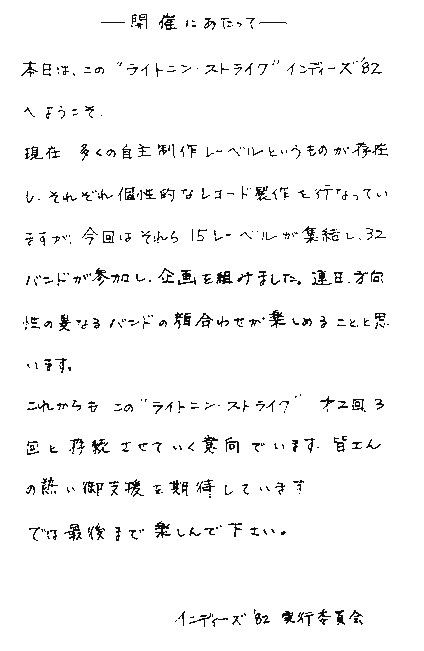 ―開催にあたって―
本日は、この“ライトニン・ストライク”インディーズ'82
へようこそ.
現在 多くの自主制作レーベルというものが存在
し、それぞれ個性的なレコード製作を行なってい
ますが、今回はそれら15レーベルが集結し、32
バンドが参加し、企画を組みました。連日、方向
性の異なるバンドの顔合わせが楽しめることと思
います。
これからも この“ライトニン・ストライク” 才2回3
回と存続させていく意向でいます. 皆さん
の熱い御支援を期待しています
では最後まで楽しんで下さい。
インディーズ'82 実行委員会